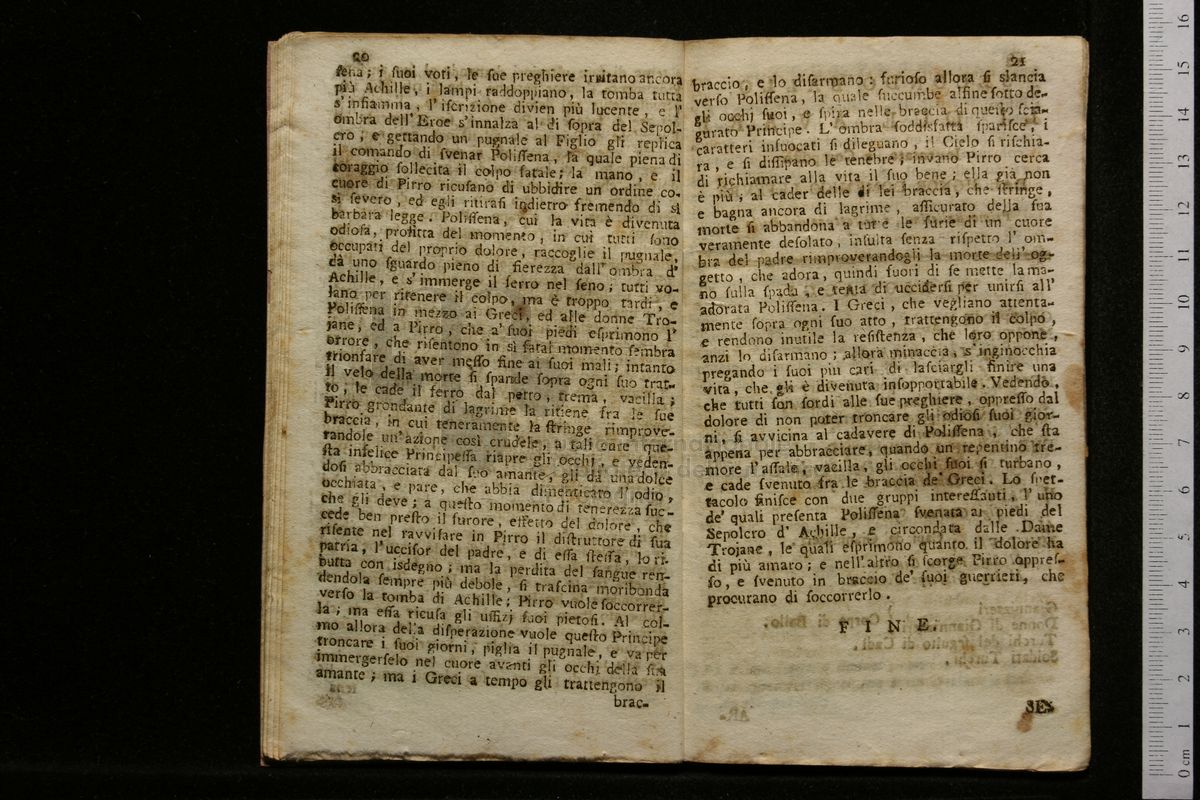 20
ſena; i ſuoi voti, le ſue preghiere irritano ancora
più Achille, i lampi raddoppiano, la tomba tutta
s'infiamma, l'iſcrizione divien più lucente, e l'
ombra dell'Eroe s'innalza al di ſopra del Sepol-
cro, e gettando un pugnale al Figlio gli replica
il comando di ſvenar Poliſſena, la quale piena di
coraggio ſollecita il colpo fatale; la mano, e il
cuore di Pirro ricuſano di ubbidire un ordine co-
sì ſevero, ed egli ritiraſi indietro fremendo di sì
barbara legge. Poliſſena, cui la vita è divenuta
odioſa, profitta del momento, in cui tutti ſono
occupati del proprio dolore, raccoglie il pugnale,
dà uno ſguardo pieno di fierezza dall'ombra d'
Achille, e s'immerge il ferro nel ſeno; tutti vo-
lano per ritenere il colpo, ma è troppo tardi, e
Poliſſena in mezzo ai Greci, ed alle donne Tro-
jane, ed a Pirro, che a' ſuoi piedi eſprimono l'
orrore, che riſentono in sì fatal momento ſembra
trionfare di aver meſſo fine ai ſuoi mali; intanto
il velo della morte ſi ſpande ſopra ogni ſuo trat-
to, le cade il ferro dal petto, trema, vacilla;
Pirro grondante di lagrime la ritiene fra le ſue
braccia, in cui teneramente la ſtringe rimprove-
randole un'azione così crudele, a tali cure que-
ſta infelice Principeſſa riapre gli occhj, e veden-
doſi abbracciata dal ſuo amante, gli dà una dolce
occhiata, e pare, che abbia dimenticato l'odio,
che gli deve; a queſto momento di tenerezza ſuc-
cede ben preſto il furore, effetto del dolore, che
riſente nel ravviſare in Pirro il diſtruttore di ſua
patria, l'ucciſor del padre, e di eſſa ſteſſa, lo ri-
butta con isdegno; ma la perdita del ſangue ren-
dendola ſempre più debole, ſi traſcina moribonda
verſo la tomba di Achille; Pirro vuole ſoccorrer-
la; ma eſſa ricuſa gli uffizj ſuoi pietoſi. Al col-
mo allora della diſperazione vuole queſto Principe
troncare i ſuoi giorni, piglia il pugnale, e va per
immergerſelo nel cuore avanti gli occhi della ſua
amante; ma i Greci a tempo gli trattengono il
brac-
21
braccio, e lo diſarmano: furioſo allora ſi slancia
verſo Poliſſena, la quale ſuccumbe alfine ſotto de-
gli occhj ſuoi, e ſpira nelle braccia di queſto ſcia-
gurato Principe. L'ombra ſoddisfatta ſpariſce, i
caratteri infuocati ſi dileguano, il Cielo ſi riſchia-
ra, e ſi diſſipano le tenebre; invano Pirro cerca
di richiamare alla vita il ſuo bene; ella già non
è più; al cader delle di lei braccia, che ſtringe,
e bagna ancora di lagrime, aſſicurato della ſua
morte ſi abbandona a tutte le furie di un cuore
veramente deſolato, inſulta ſenza riſpetto l'om-
bra del padre rimproverandogli la morte dell'og-
getto, che adora, quindi fuori di ſe mette la ma-
no ſulla ſpada, e tenta di ucciderſi per unirſi all'
adorata Poliſſena. I Greci, che vegliano attenta-
mente ſopra ogni ſuo atto, trattengono il colpo,
e rendono inutile la reſiſtenza, che loro oppone,
anzi lo diſarmano; allora minaccia, s'inginocchia
pregando i ſuoi più cari di laſciargli finire una
vita, che gli è divenuta inſopportabile. Vedendo,
che tutti ſon ſordi alle ſue preghiere, oppreſſo dal
dolore di non poter troncare gli odioſi ſuoi gior-
ni, ſi avvicina al cadavere di Poliſſena, che ſta
appena per abbracciare, quando un repentino tre-
more l'aſſale, vacilla, gli occhi ſuoi ſi turbano,
e cade ſvenuto fra le braccia de' Greci. Lo ſpet-
tacolo finiſce con due gruppi intereſſanti, l'uno
de' quali preſenta Poliſſena ſvenata ai piedi del
Sepolcro d'Achille, e circondata dalle Dame
Trojane, le quali eſprimono quanto il dolore ha
di più amaro; e nell'altro ſi ſcorge Pirro oppreſ-
ſo, e ſvenuto in braccio de' ſuoi guerrieri, che
procurano di ſoccorrerlo.
FINE.
SE-
0 cm 1 2 3 4 5 6 7 8 9 10 11 12 13 14 15 16